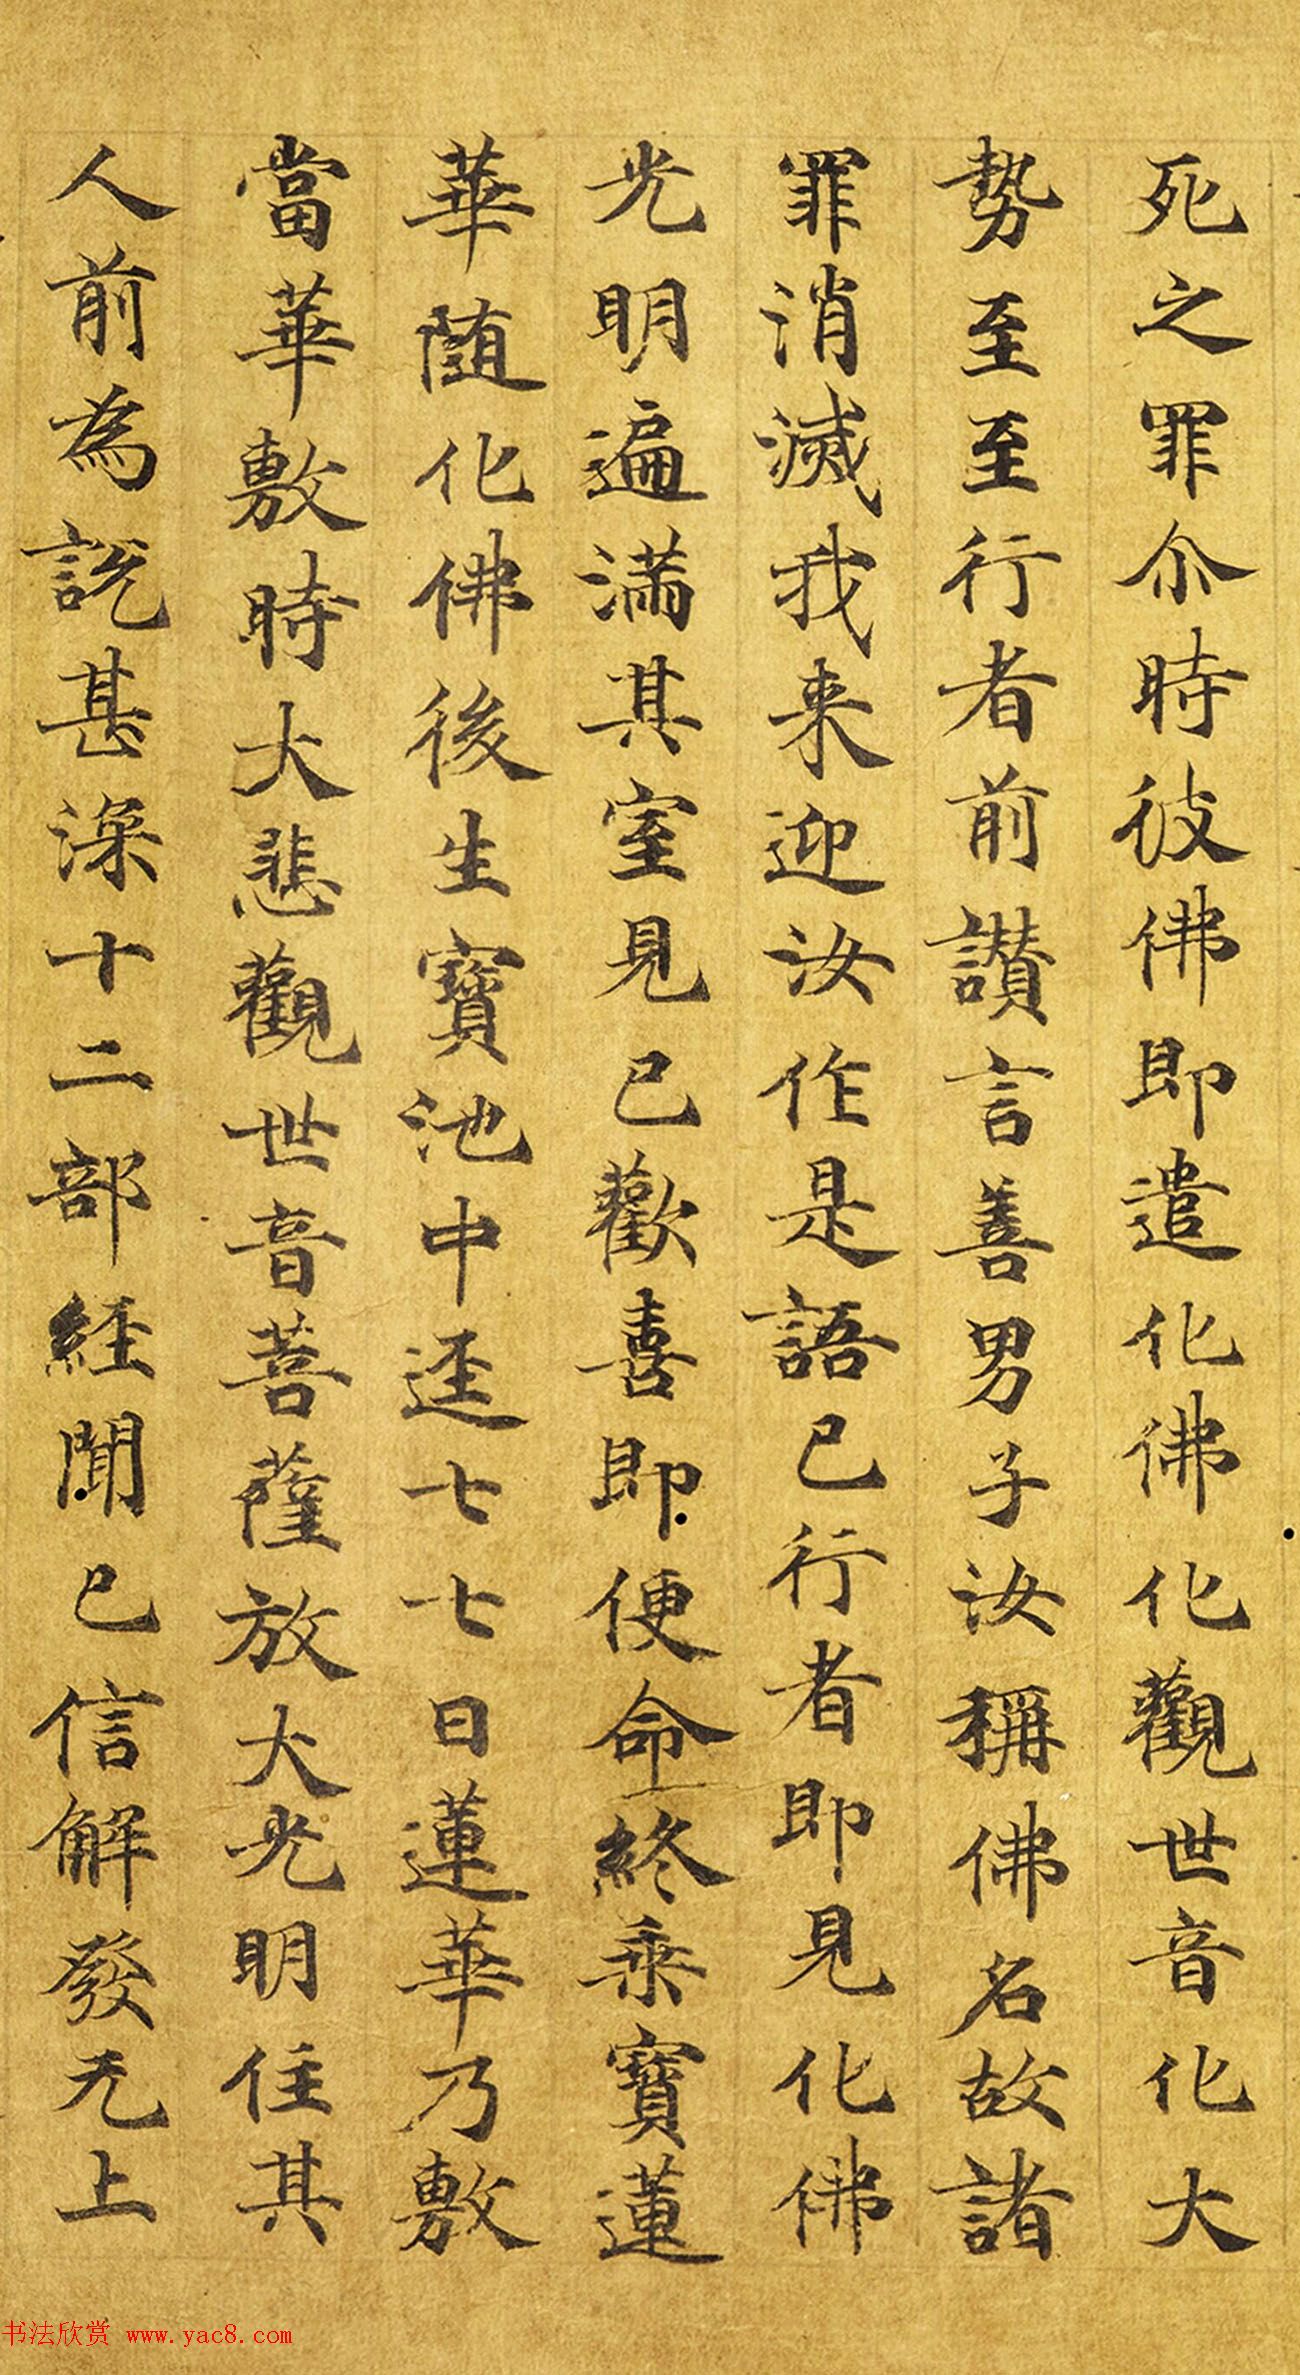 死之罪尒時彼佛即遣化佛化觀世音化大
勢至至行者前讃言善男子汝稱佛名故諸
罪消滅我来迎汝作是語已行者即見化佛
光明遍滿其室見已歡喜即便命終乘寶蓮
華随化佛後生寶池中逕七七日蓮華乃敷
當華敷時大悲觀世音菩薩放大光明住其
人前為説甚深十二部経聞已信解發无上
书法欣赏 www.yac8.com